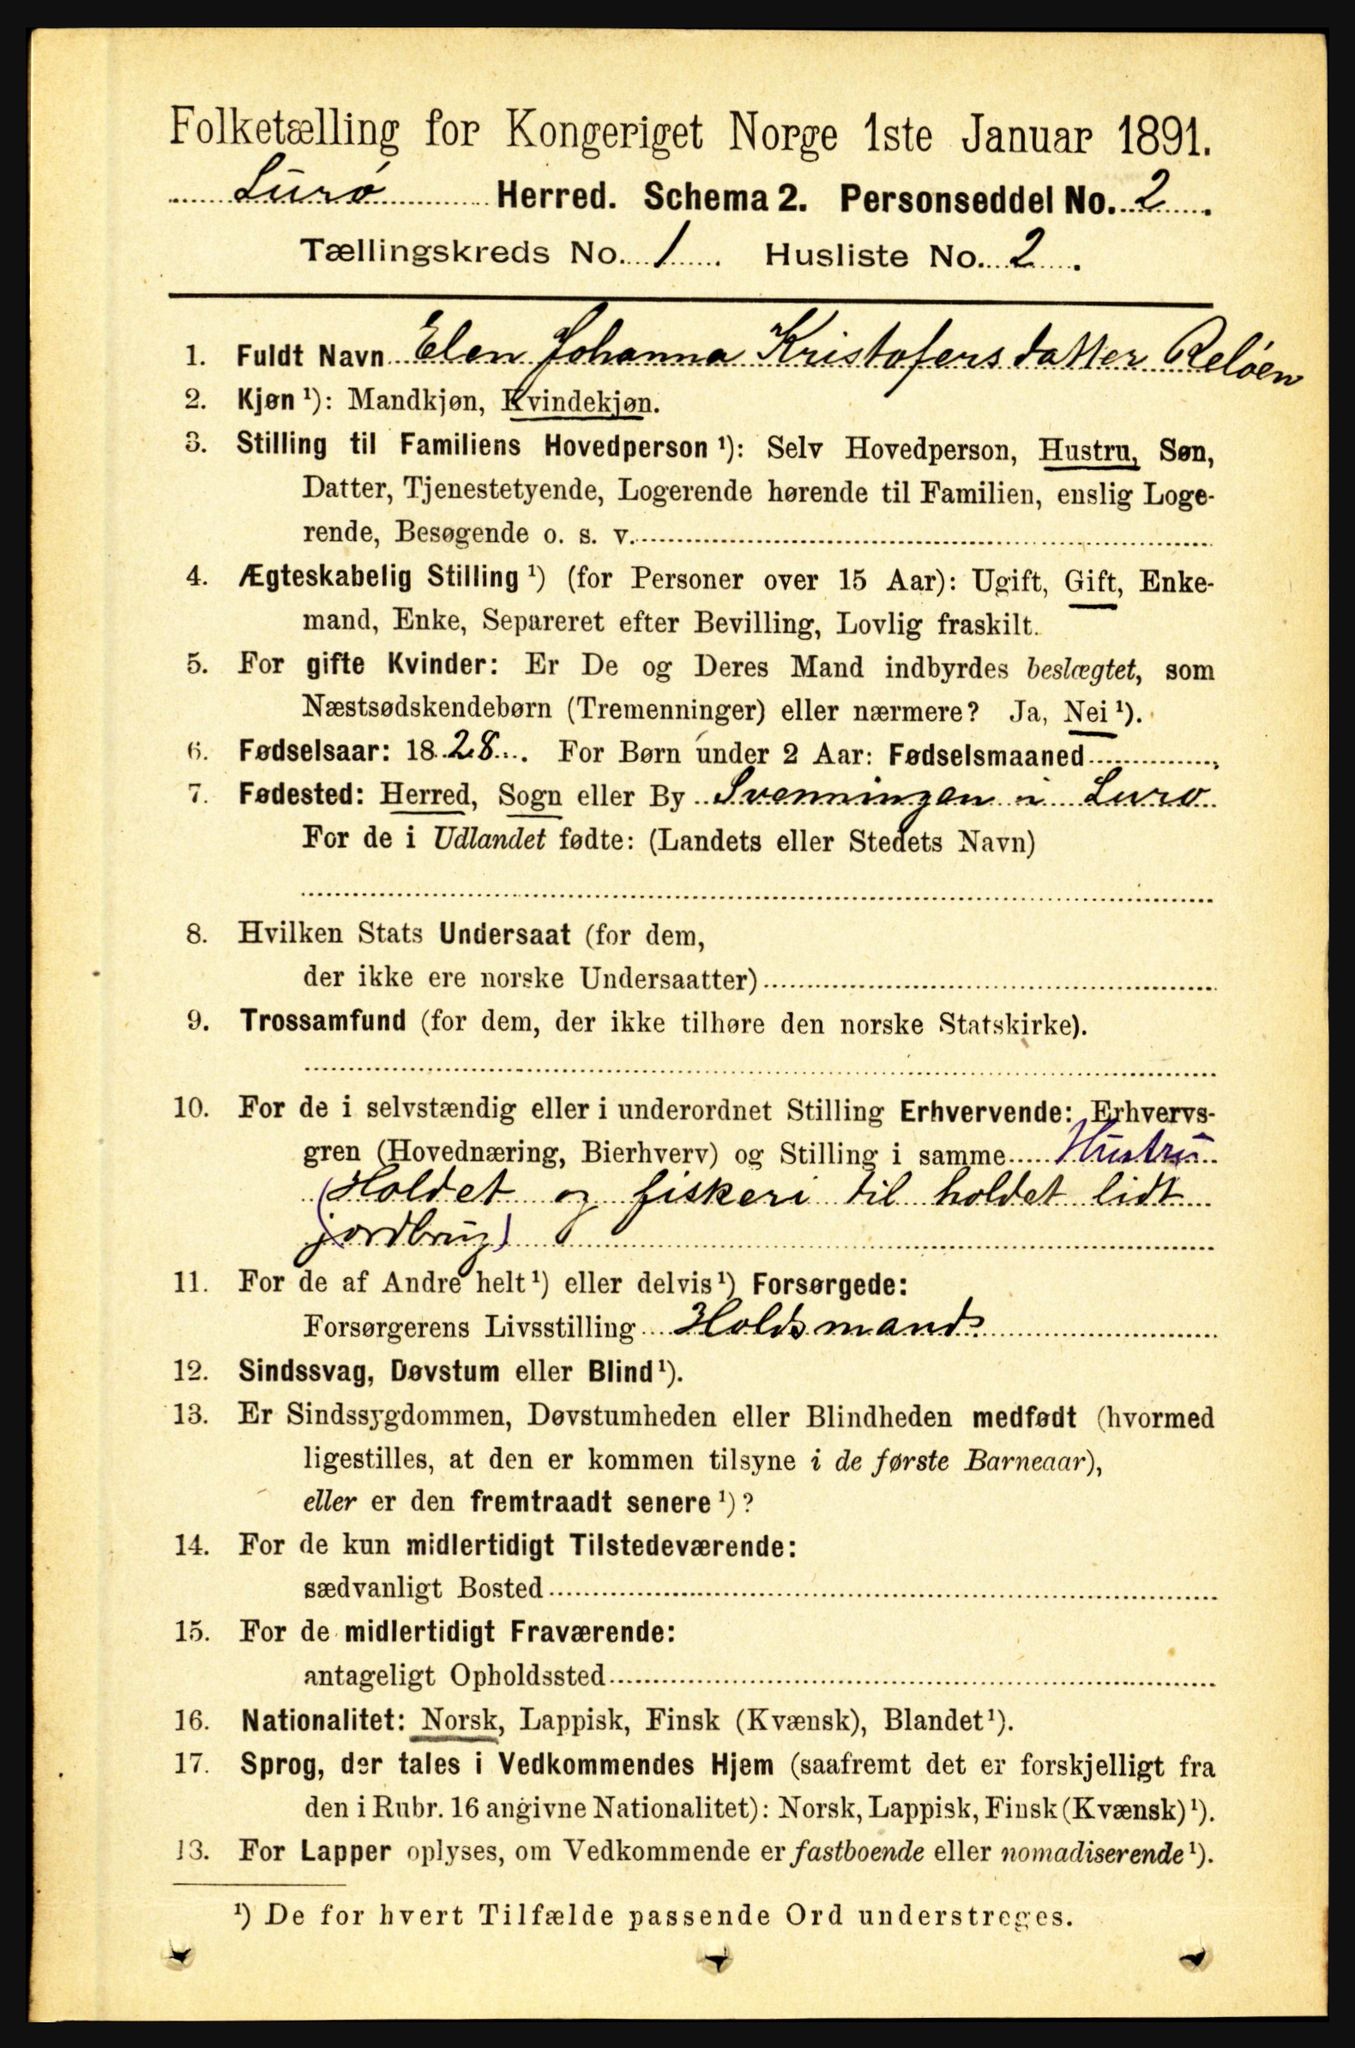 Folketælling for Kongeriget Norge 1ste Januar 1891.
Lurø Herred. Schema 2. Personseddel No. 2.
Tællingskreds No. 1. Husliste No. 2.
1. Fuldt Navn Elen Johanna Kristofersdatter Reløen
2. Kjøn ¹): Mandkjøn, Kvindekjøn.
3. Stilling til Familiens Hovedperson ¹): Selv Hovedperson, Hustru, Søn,
Datter, Tjenestetyende, Logerende hørende til Familien, enslig Loge-
rende, Besøgende o. s. v.
4. Ægteskabelig Stilling ¹) (for Personer over 15 Aar): Ugift, Gift, Enke-
mand, Enke, Separeret efter Bevilling, Lovlig fraskilt.
5. For gifte Kvinder: Er De og Deres Mand indbyrdes beslægtet, som
Næstsødskendebørn (Tremenninger) eller nærmere? Ja, Nei ¹).
6. Fødselsaar: 1828. For Børn under 2 Aar: Fødselsmaaned
7. Fødested: Herred, Sogn eller By Svenningen i Lurø
For de i Udlandet fødte: (Landets eller Stedets Navn)
8. Hvilken Stats Undersaat (for dem,
der ikke ere norske Undersaatter)
9. Trossamfund (for dem, der ikke tilhøre den norske Statskirke).
10. For de i selvstændig eller i underordnet Stilling Erhvervende: Erhvervs-
gren (Hovednæring, Bierhverv) og Stilling i samme Hustru
(Holdet og fiskeri til holdet lidt
jordbrug)
11. For de af Andre helt ¹) eller delvis ¹) Forsørgede:
Forsørgerens Livsstilling Holdsmands
12. Sindssvag, Døvstum eller Blind ¹).
13. Er Sindssygdommen, Døvstumheden eller Blindheden medfødt (hvormed
ligestilles, at den er kommen tilsyne i de første Barneaar),
eller er den fremtraadt senere ¹)?
14. For de kun midlertidigt Tilstedeværende:
sædvanligt Bosted
15. For de midlertidigt Fraværende:
antageligt Opholdssted
16. Nationalitet: Norsk, Lappisk, Finsk (Kvænsk), Blandet ¹).
17. Sprog, der tales i Vedkommendes Hjem (saafremt det er forskjelligt fra
den i Rubr. 16 angivne Nationalitet): Norsk, Lappisk, Finsk (Kvænsk) ¹).
13. For Lapper oplyses, om Vedkommende er fastboende eller nomadiserende ¹).
¹) De for hvert Tilfælde passende Ord understreges.